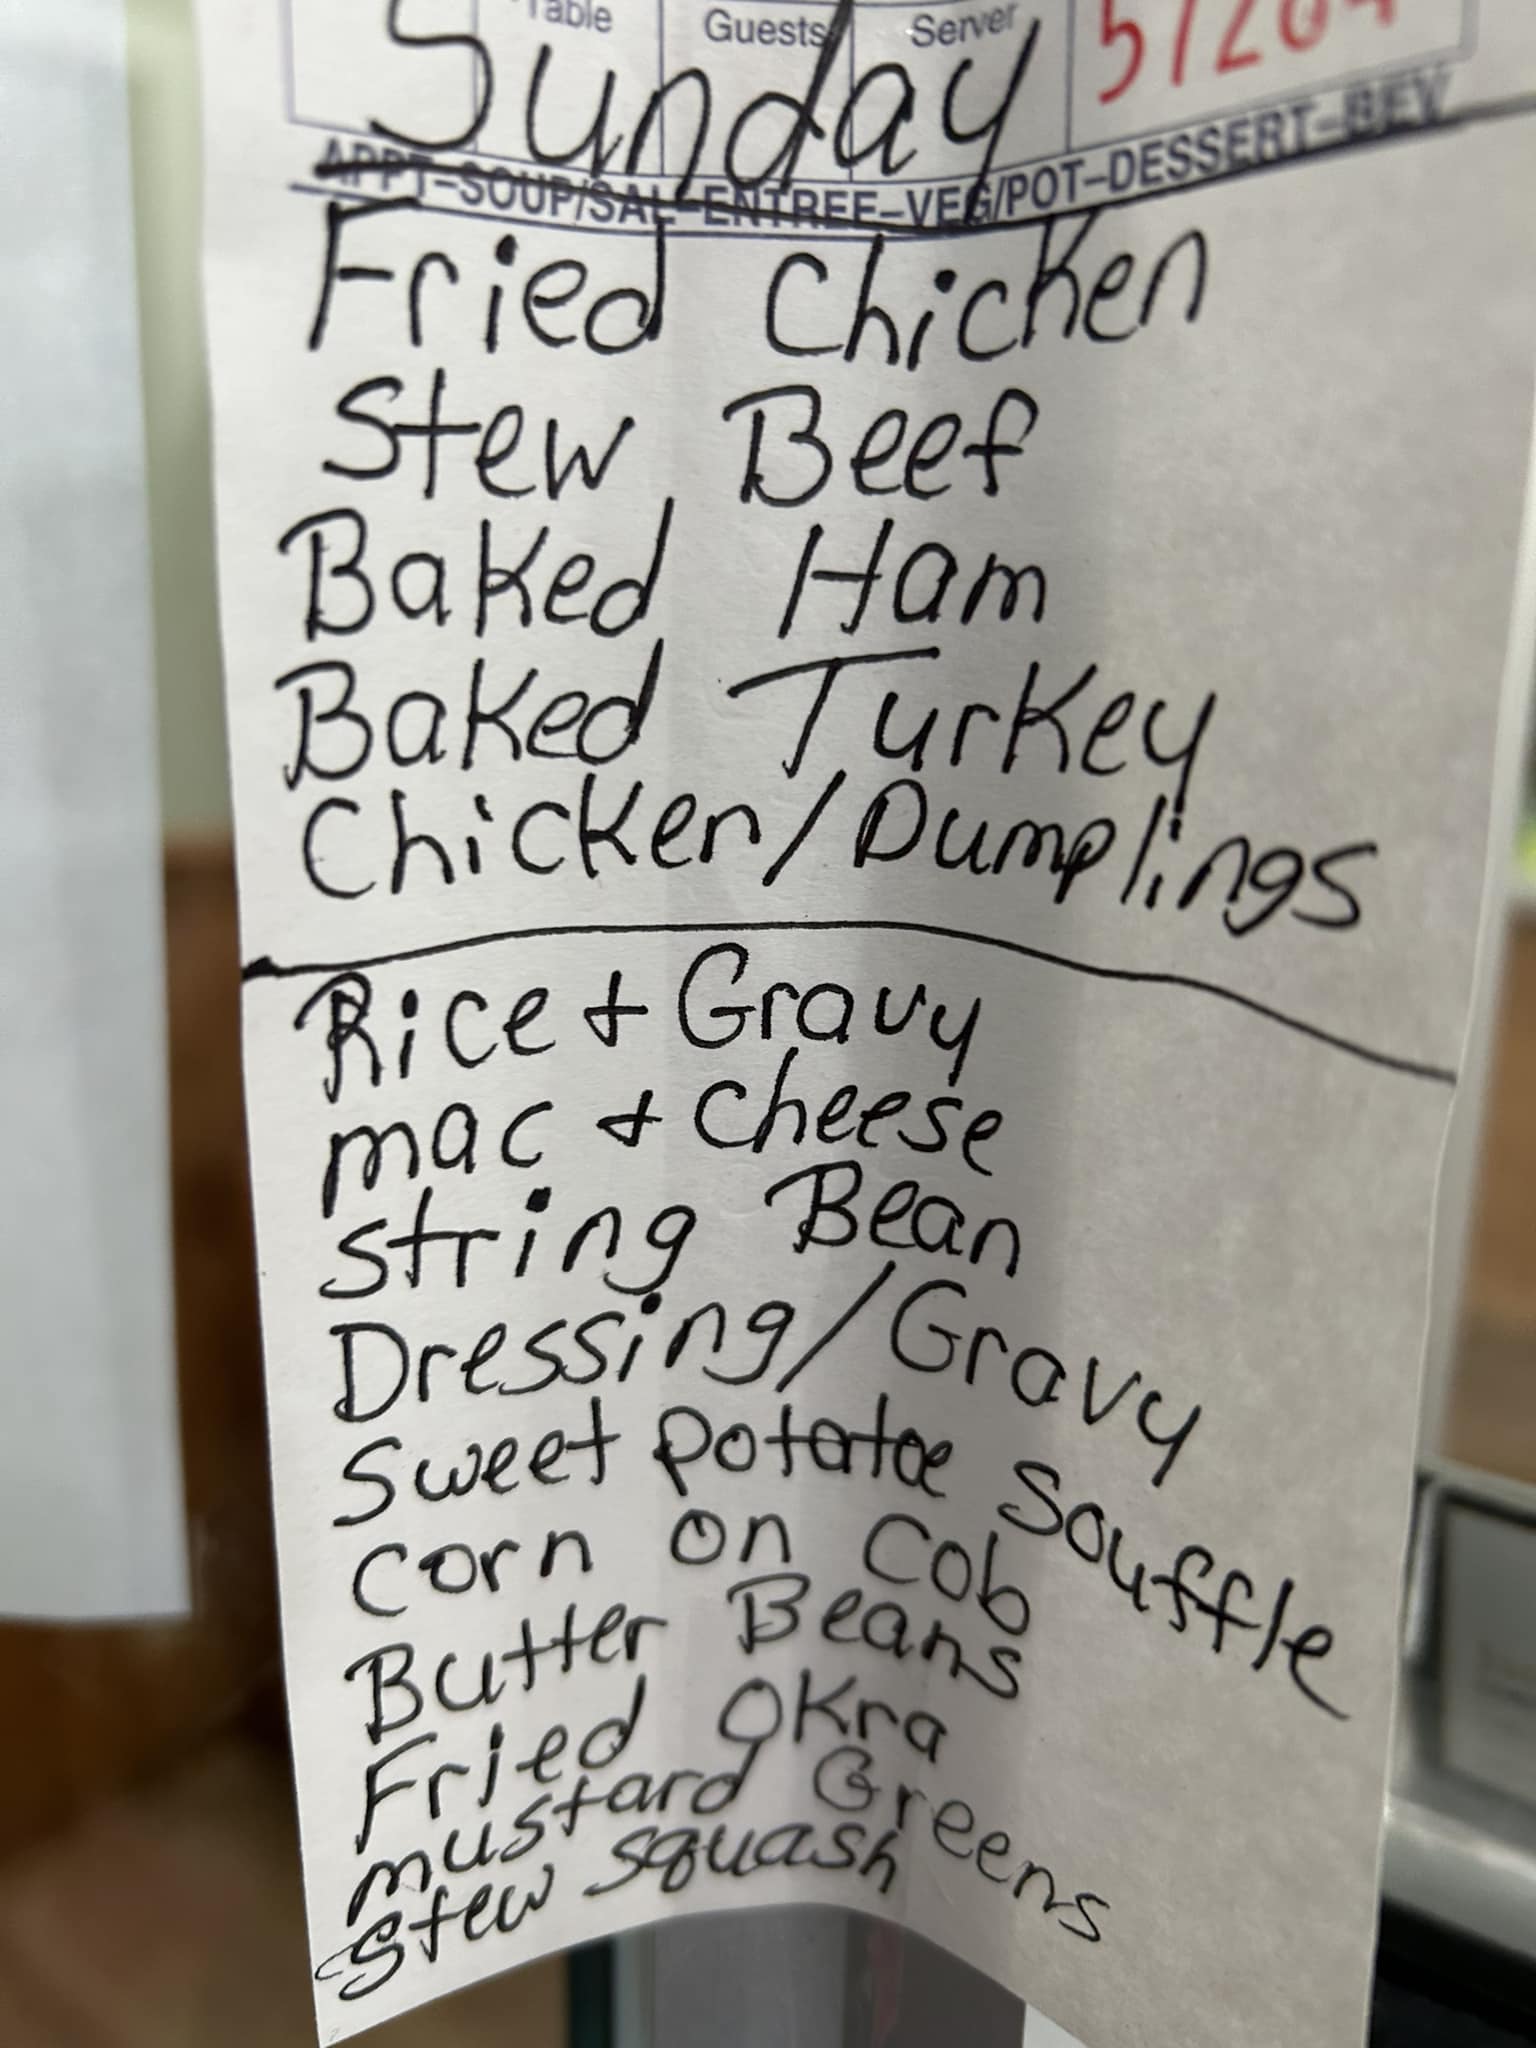 Table Guests Server 57204
Sunday
APPT-SOUP/SAL-ENTREE-VEG/POT-DESSERT-BEV
Fried Chicken
Stew Beef
Baked Ham
Baked Turkey
Chicken/Dumplings
Rice + Gravy
mac + cheese
string Bean
Dressing/Gravy
Sweet potatoe souffle
corn on cob
Butter Beans
Fried OKra
mustard Greens
stew squash